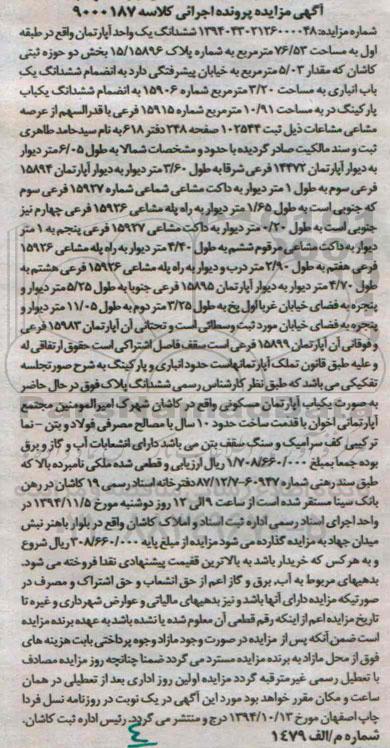 آگهی مزایده پرونده اجرائی کلاسه ۹۰۰۰۱۸۷
شماره مزایده: ۱۳۹۴۰۴۳۰۲۱۲۶۰۰۰۰۴۸ ششدانگ یک واحد آپارتمان واقع در طبقه
اول به مساحت ۷۶/۵۳ مترمربع به شماره پلاک ۱۵/۱۵۸۹۶ بخش دو حوزه ثبتی
کاشان که مقدار ۵/۰۳ مترمربع به خیابان پیشرفتگی دارد به انضمام ششدانگ یک
باب انباری به مساحت ۳/۲۰ مترمربع شماره ۱۵۹۰۶ به انضمام ششدانگ یکباب
پارکینگ در به مساحت ۱۰/۹۱ مترمربع شماره ۱۵۹۱۵ فرعی با قدرالسهم از عرصه
مشاعی مشاعات ذیل ثبت ۱۰۲۵۴۴ صفحه ۲۴۸ دفتر ۶۱۸ به نام سیدحامد طاهری
ثبت و سند مالکیت صادر گردیده با حدود و مشخصات شمالا به طول ۶/۰۵ متر دیوار
به دیوار آپارتمان ۱۴۴۷۲ فرعی شرقا به طول ۳/۶۰ متر دیوار به دیوار آپارتمان ۱۵۸۹۴
فرعی سوم به طول ۱ متر دیوار به داکت مشاعی شماعی شماره ۱۵۹۲۷ فرعی سوم
که جنوبی است به طول ۱/۶۵ متر دیوار به راه پله مشاعی ۱۵۹۲۶ فرعی چهارم نیز
جنوبی است به طول ۰/۲۰ متر دیوار به داکت مشاعی ۱۵۹۲۷ فرعی پنجم به ۱ متر
دیوار به داکت مشاعی مرقوم ششم به طول ۴/۴۰ متر دیوار به راه پله مشاعی ۱۵۹۲۶
فرعی هفتم به طول ۲/۹۰ متر درب و دیوار به راه پله مشاعی ۱۵۹۲۶ فرعی هشتم به
طول ۴/۷۰ متر دیوار به دیوار آپارتمان ۱۵۸۹۵ فرعی جنوبا به طول ۵/۲۵ متر دیوار و
پنجره به فضای خیابان غربا اول پخ به طول ۳/۲۵ متر دوم به طول ۱۱/۰۵ متر دیوار و
پنجره به فضای خیابان مورد ثبت وسطائی است و تحتانی آن آپارتمان ۱۵۹۸۳ فرعی
و فوقانی آن آپارتمان ۱۵۸۹۹ فرعی است سقف فاصل اشتراکی است حقوق ارتفاقی له
و علیه طبق قانون تملک آپارتمانهاست حدود انباری و پارکینگ به شرح صورتجلسه
تفکیکی می باشد که طبق نظر کارشناس رسمی ششدانگ پلاک فوق در حال حاضر
به صورت یکباب آپارتمان مسکونی واقع در کاشان شهرک امیرالمومنین مجتمع
آپارتمانی اخوان با قدمت ساخت حدود ۱۰ سال با مصالح مصرفی فولاد و بتن - نما
ترکیبی کف سرامیک و سنگ سقف بتن می باشد دارای انشعابات آب و گاز و برق
بوده جمعا بمبلغ ۱/۷۰۸/۶۶۰/۰۰۰ ریال ارزیابی و قطعی شده ملکی نامبرده بالا که
طبق سند رهنی شماره ۶۰۹۴۷-۸۷/۱۲/۷ دفترخانه اسناد رسمی ۱۹ کاشان در رهن
بانک سینا مستقر شده است از ساعت ۹ الی ۱۲ روز دوشنبه مورخ ۱۳۹۴/۱۱/۵ در
واحد اجرای اسناد رسمی اداره ثبت اسناد و املاک کاشان واقع در بلوار باهنر نبش
میدان جهاد به مزایده گذارده می شود مزایده از مبلغ پایه ۳۰۸/۶۶۰/۰۰۰ ریال شروع
و به هر کس که خریدار باشد به بالاترین قیمت پیشنهادی نقدا فروخته می شود.
بدهیهای مربوط به آب، برق و گاز اعم از حق انشعاب و حق اشتراک و مصرف در
صورتیکه مزایده دارای آنها باشد و نیز بدهیهای مالیاتی و عوارض شهرداری و غیره تا
تاریخ مزایده اعم از اینکه رقم قطعی آن معلوم شده یا نشده باشد به عهده برنده مزایده
است ضمن آنکه پس از مزایده در صورت وجود مازاد وجوه پرداختی بابت هزینه های
فوق از محل مازاد به برنده مزایده مسترد می گردد ضمنا چنانچه روز مزایده مصادف
با تعطیل رسمی غیرمترقبه گردد مزایده اولین روز اداری بعد از تعطیلی در همان
ساعت و مکان مقرر خواهد بود مورد این آگهی در یک نوبت در روزنامه نسل فردا
چاپ اصفهان مورخ ۱۳۹۴/۱۰/۱۳ درج و منتشر می گردد. رئیس اداره ثبت کاشان.
شماره م/الف ۱۴۷۹